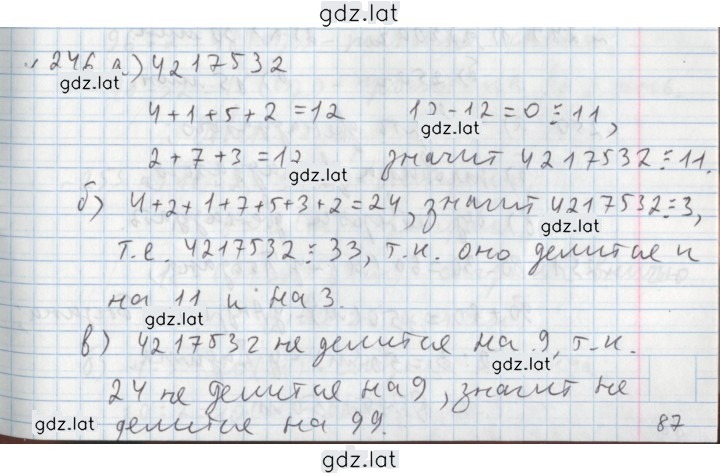 gdz.lat
а) 4217532
gdz.lat
4+1+5+2=12 12-12=0⋮11,
gdz.lat
2+7+3=12 значит 4217532⋮11.
gdz.lat
б) 4+2+1+7+5+3+2=24, значит 4217532⋮3,
gdz.lat
т.е. 4217532⋮33, т.к. оно делится и
на 11 и на 3.
gdz.lat
в) 4217532 не делится на 9, т.к.
gdz.lat
24 не делится на 9, значит не
делится на 99.
gdz.lat
gdz.lat
87
gdz.lat